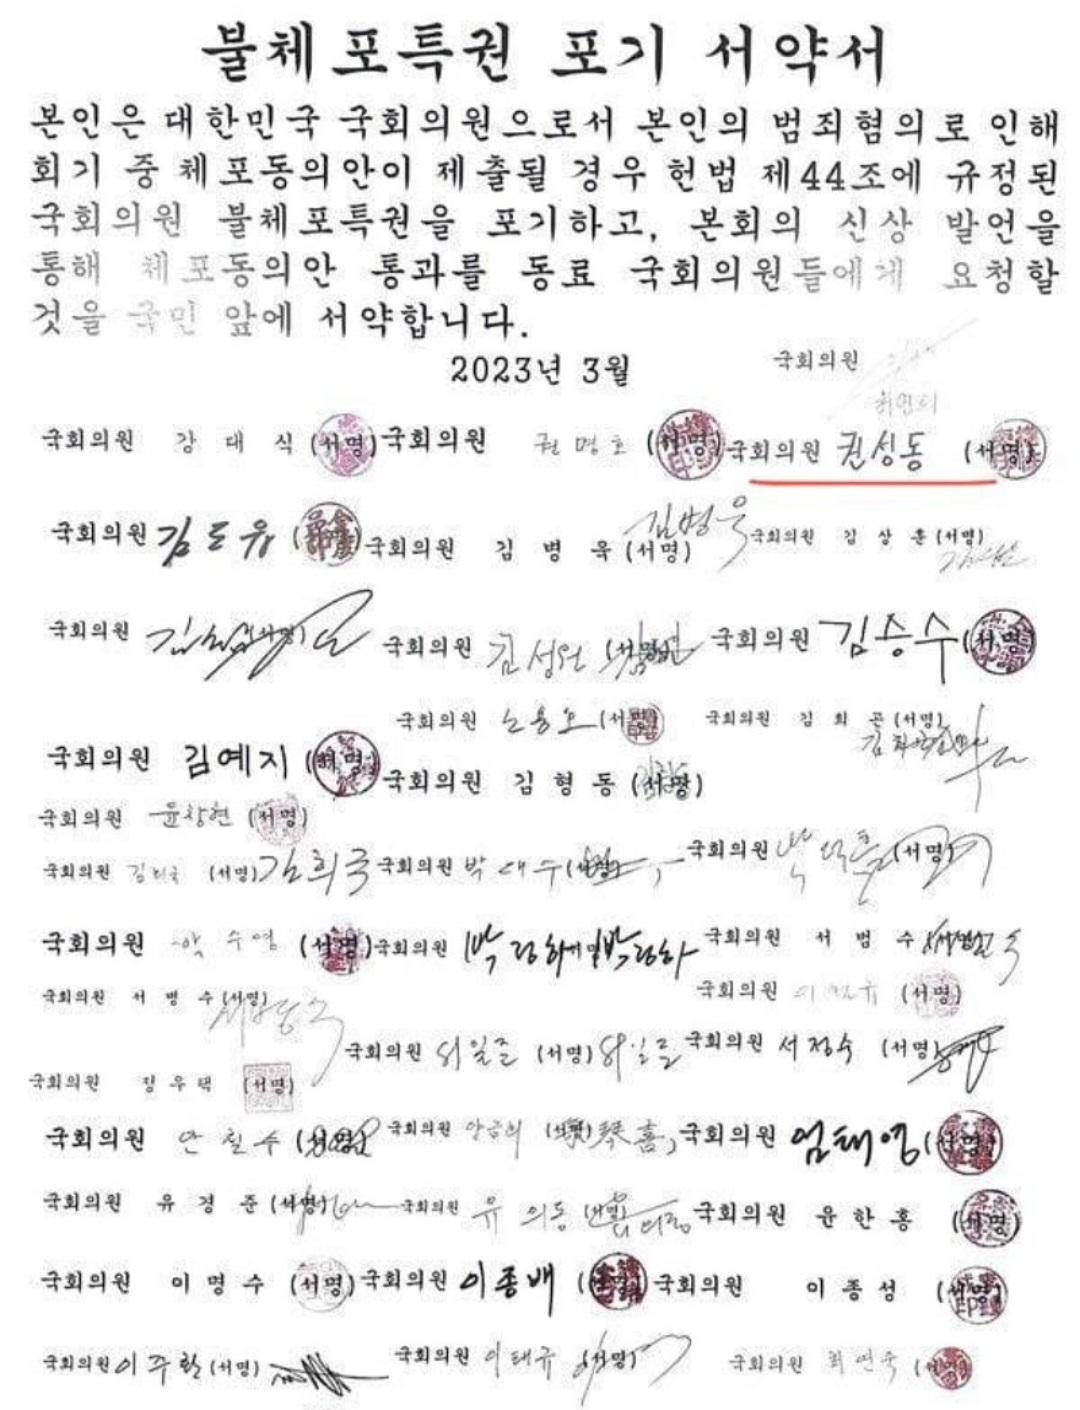 불체포특권 포기 서약서
본인은 대한민국 국회의원으로서 본인의 범죄혐의로 인해
회기 중 체포동의안이 제출될 경우 헌법 제44조에 규정된
국회의원 불체포특권을 포기하고, 본회의 신상 발언을
통해 체포동의안 통과를 동료 국회의원들에게 요청할
것을 국민 앞에 서약합니다.
2023년 3월
국회의원
국회의원 강대식 (서명) 국회의원 권명호 (서명) 국회의원 권성동 (서명)
국회의원 김도읍 국회의원 김병욱 (서명) 김병욱 국회의원 김상훈 (서명)
국회의원 국회의원 김성원 국회의원 김승수 (서명)
국회의원 노용호 (서명) 국회의원 김희곤 (서명)
국회의원 김예지 (서명) 국회의원 김형동 (서명)
국회의원 윤창현 (서명)
국회의원 김희국 (서명) 김희국 국회의원 박대수 국회의원 (서명)
국회의원 박수영 (서명) 국회의원 박정하 박정하 국회의원 서범수
국회의원 서병수 (서명) 국회의원 (서명)
국회의원 서일준 (서명) 서일준 국회의원 서정숙 (서명)
국회의원 정우택 (서명)
국회의원 안철수 (서명) 국회의원 국회의원 엄태영 (서명)
국회의원 유경준 (서명) 국회의원 유의동 (서명) 국회의원 윤한홍 (서명)
국회의원 이명수 (서명) 국회의원 이종배 (서명) 국회의원 이종성 (서명)
국회의원 이주환 (서명) 국회의원 이태규 (서명) 국회의원 최연숙 (서명)